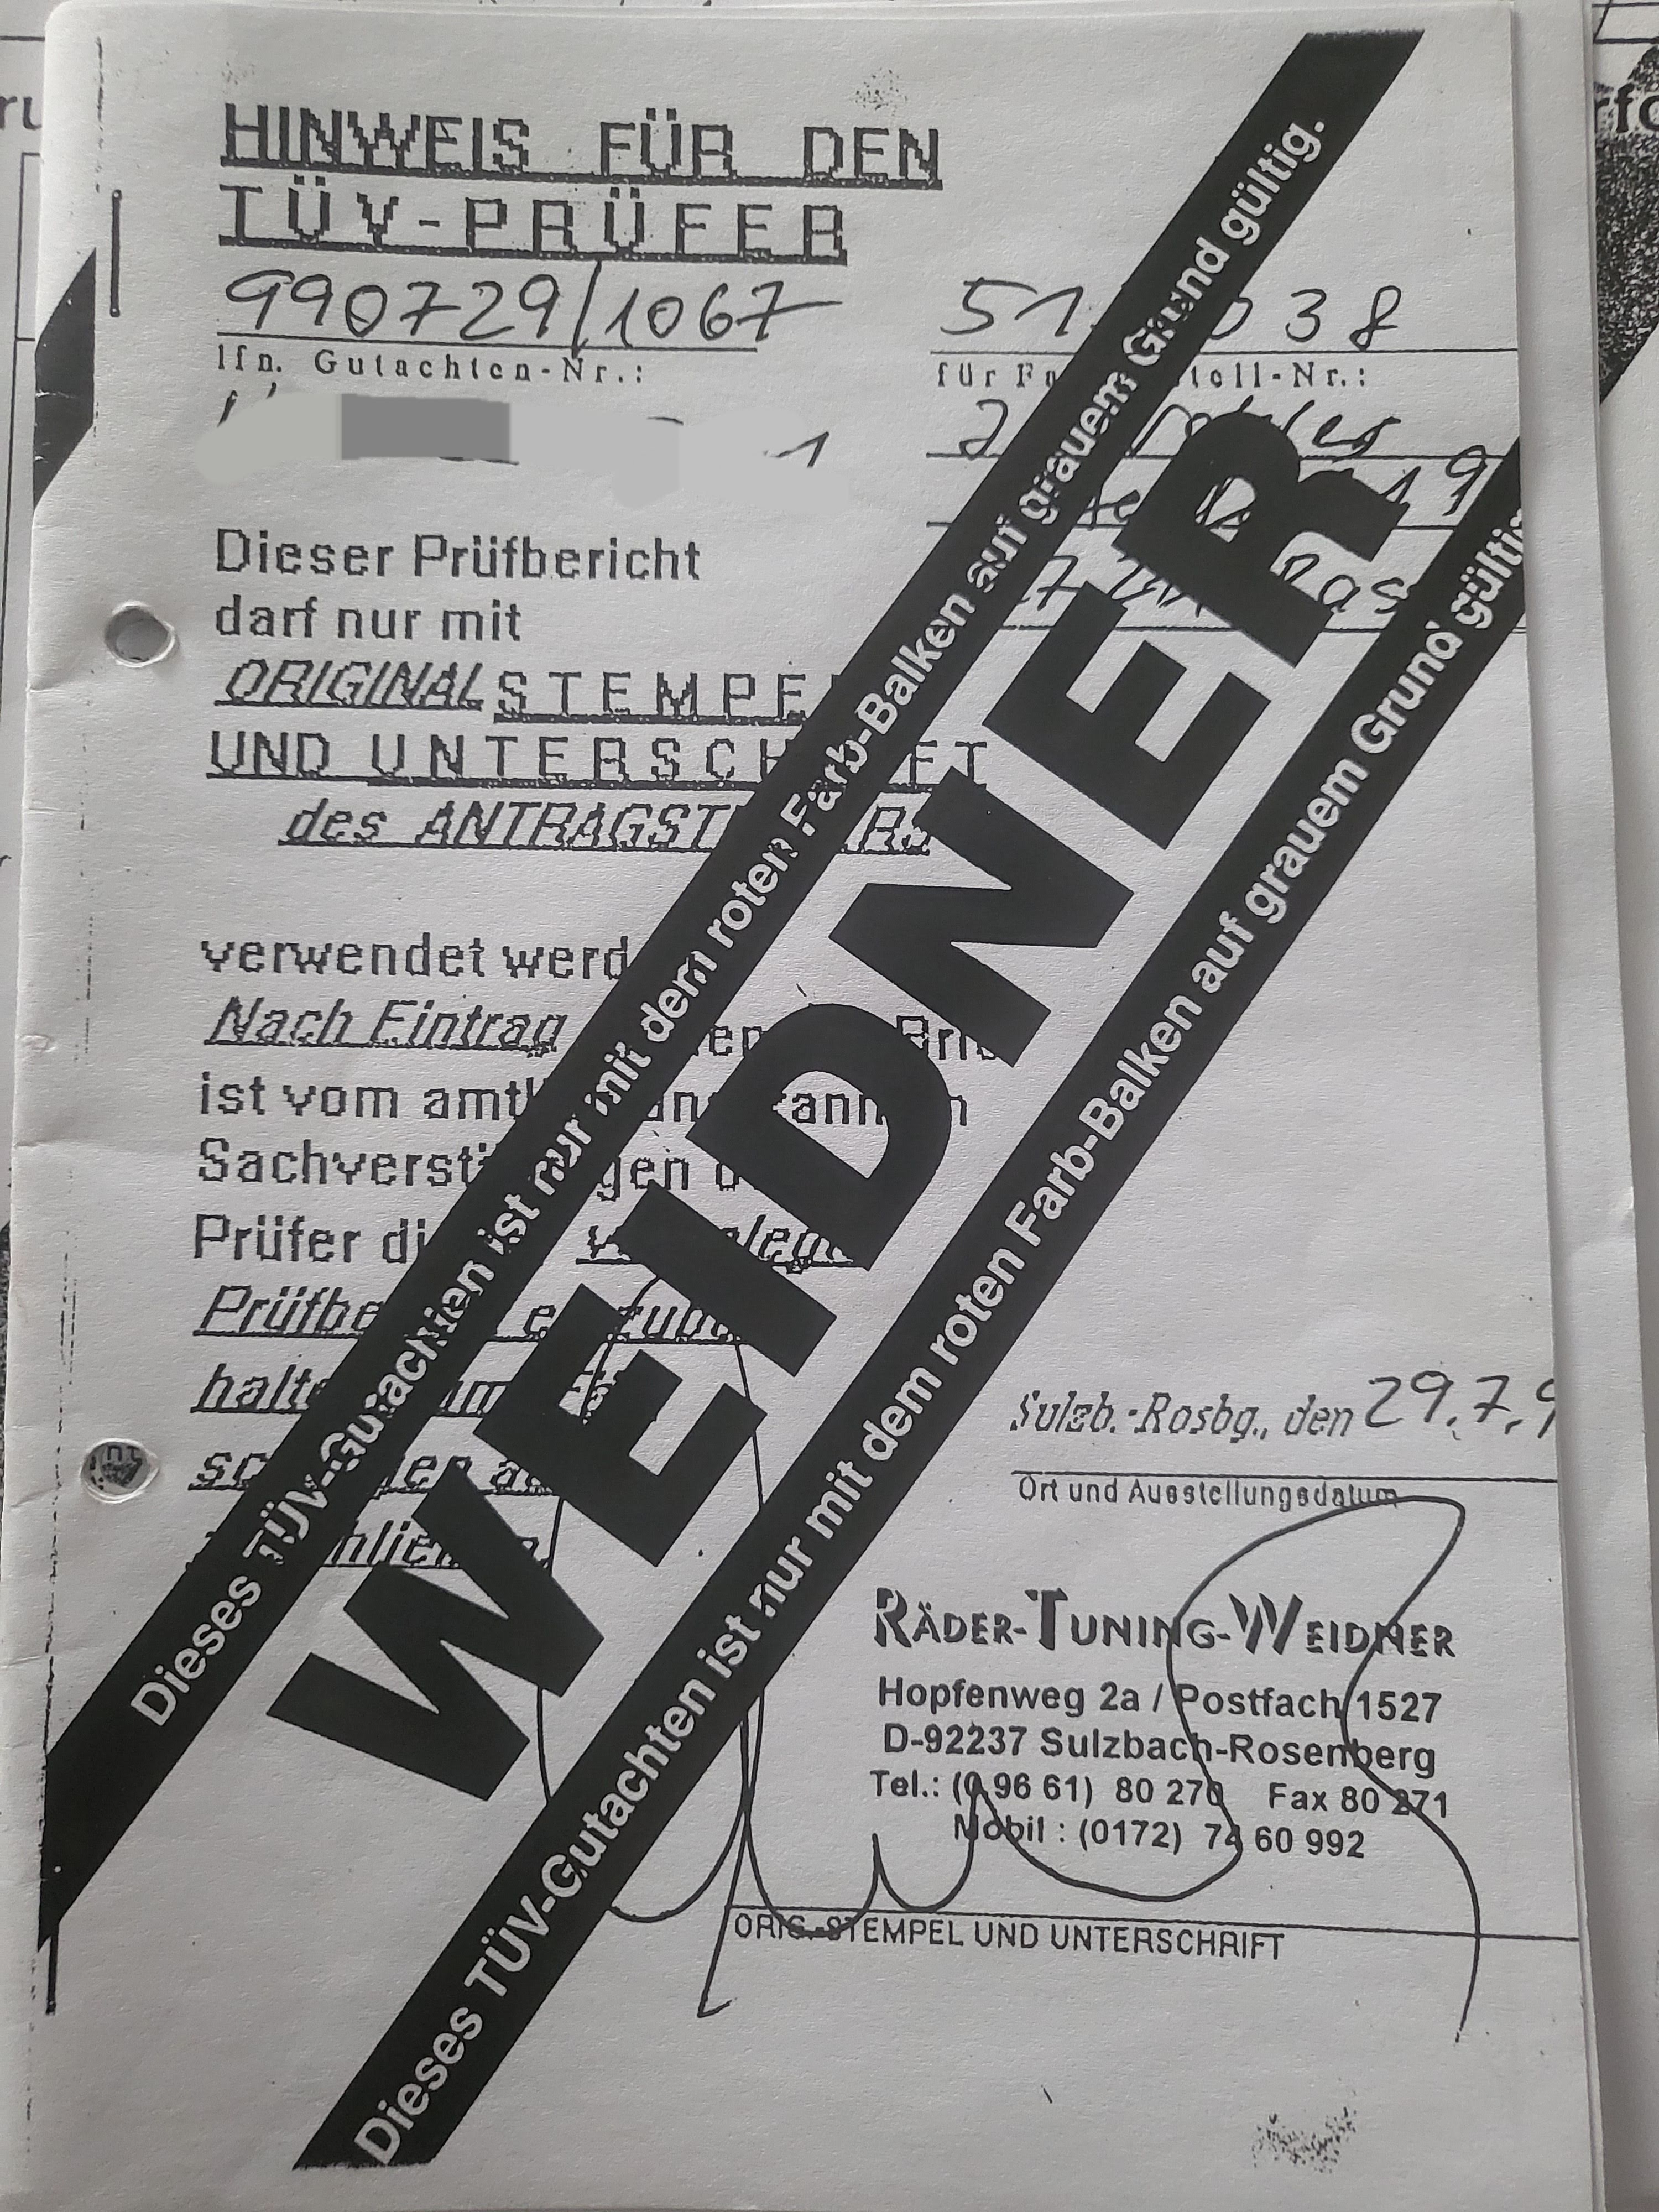 HINWEIS FÜR DEN
TÜV-PRÜFER
990729/1067
lfn. Gutachten-Nr.:
51 38
für
Nr.:
1
Dieser Prüfbericht
darf nur mit
ORIGINAL STEMPE
UND UNTERSCH FT
des ANTRAGST
verwendet werd
Nach Eintrag
ist vom amtl
Sachverst gen
Prüfer di
Prüfbe
halte
Dieses TÜV-Gutachten ist nur mit dem roten Farb-Balken auf grauem Grund gültig.
WEIDNER
Dieses TÜV-Gutachten ist nur mit dem roten Farb-Balken auf grauem Grund gültig
Sulzb.-Rosbg., den 29.7.9
Ort und Ausstellungsdatum
RÄDER-TUNING-WEIDNER
Hopfenweg 2a / Postfach 1527
D-92237 Sulzbach-Rosenberg
Tel.: (0 96 61) 80 270 Fax 80 271
Mobil : (0172) 74 60 992
ORIG.-STEMPEL UND UNTERSCHRIFT